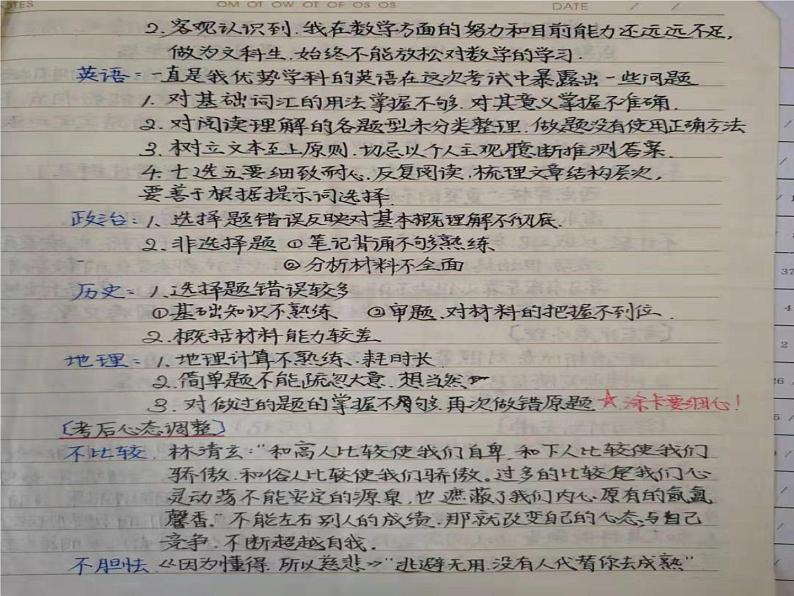 OM OT OW OT OF OS OS
DATE / /
2. 客观认识到.我在数学方面的努力和目前能力还远远不足,
做为文科生.始终不能放松对数学的学习.
英语:一直是我优势学科的英语在这次考试中暴露出一些问题
1. 对基础词汇的用法掌握不够.对其意义掌握不准确.
2. 对阅读理解的各题型未分类整理.做题没有使用正确方法
3. 树立文本至上原则.切忌以个人主观臆断推测答案.
4. 七选五要细致耐心,反复阅读.梳理文章结构层次,
要善于根据提示词选择.
政治:1. 选择题错误反映对基本概理解不彻底.
2. 非选择题 ①笔记背诵不够熟练
②分析材料不全面
历史:1. 选择题错误较多
①基础知识不熟练 ②审题.对材料的把握不到位.
2. 概括材料能力较差
地理:1. 地理计算不熟练.耗时长
2. 简单题不能疏忽大意.想当然
3. 对做过的题的掌握不够.再次做错原题 ★涂卡要细心!
[考后心态调整]
不比较.林清玄:“和高人比较使我们自卑.和下人比较使我们
骄傲.和俗人比较使我们骄傲。过多的比较是我们心
灵动荡不能安定的源泉,也遮蔽了我们内心原有的氤氲
馨香.”不能左右别人的成绩.那就改变自己的心态.与自己
竞争.不断超越自我.
不胆怯 《因为懂得.所以慈悲》“逃避无用.没有人代替你去成熟”